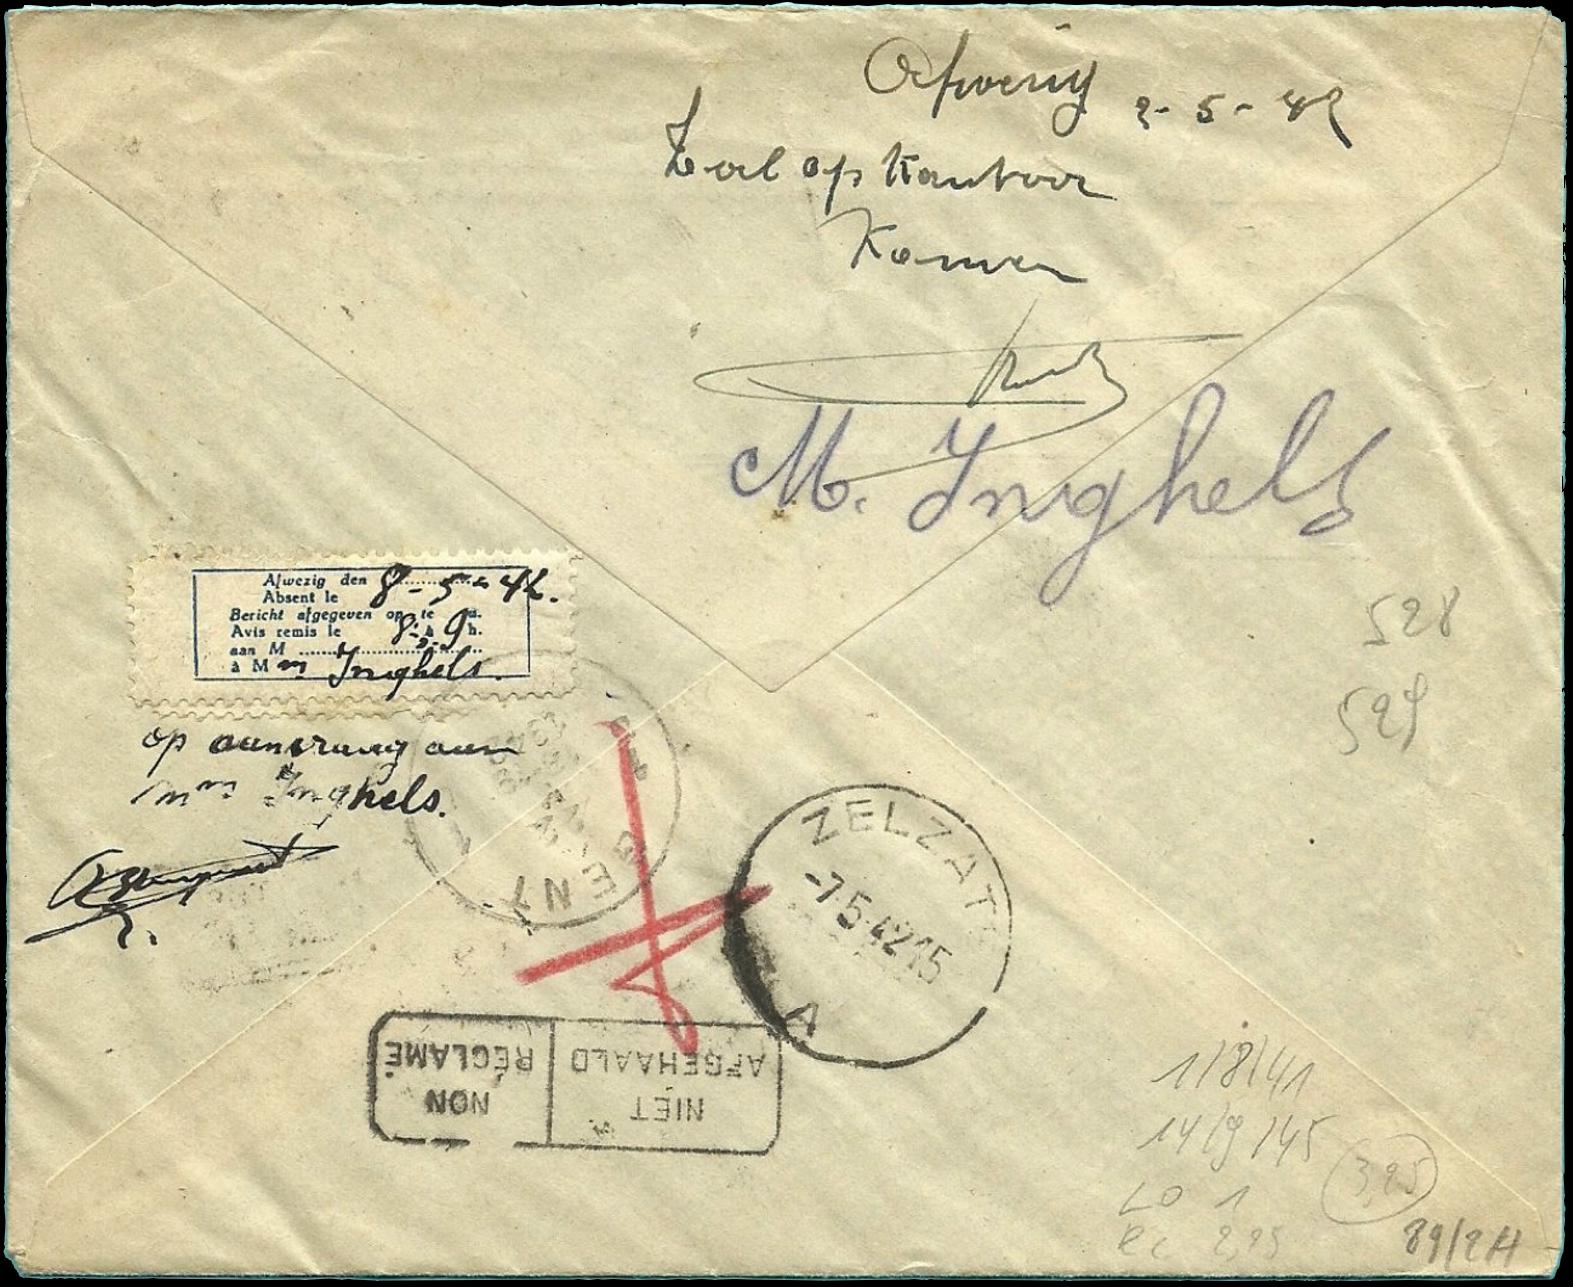 Afwezig 2-5-42
Zal op Kantoor
Komen
M. Inghels
Afwezig den
Absent le 8-5-42.
Bericht afgegeven op te u.
Avis remis le 8-9 h.
aan M
à M m Inghels.
op aanvraag aan
mm Inghels.
528
529
GENT
1
ZELZATE
-7.5.42 15
A
NIET
AFGEHAALD
NON
RÉCLAMÉ
1/8/41
14/9/45
LO 1
3,25
Rc 2,25
89/2H